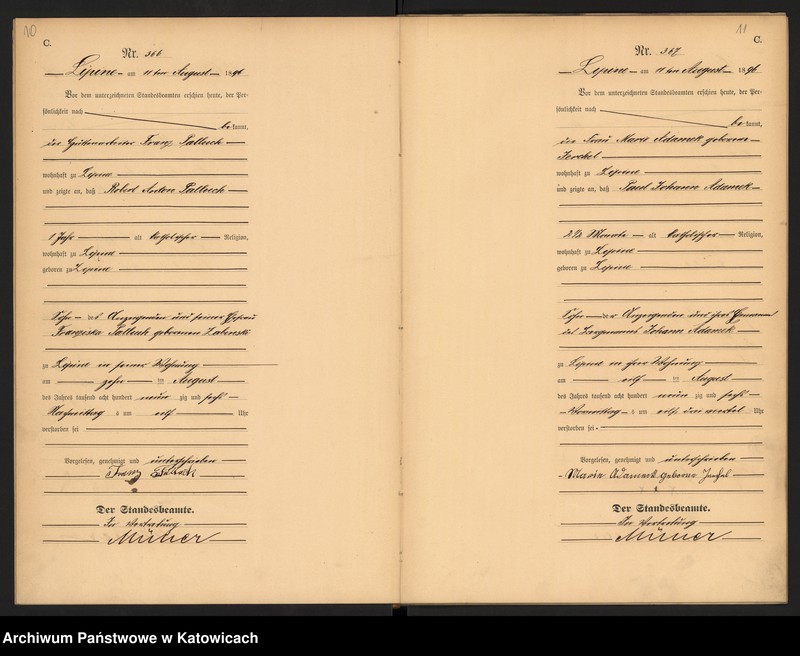 10
C.
Nr. 366
Lipine am 11ten August 1896
Vor dem unterzeichneten Standesbeamten erschien heute, der Per-
sönlichkeit nach
bekannt,
der Hüttenarbeiter Franz Palluch
wohnhaft zu Lipine
und zeigte an, daß Robert Anton Palluch
1 Jahr alt katholischer Religion,
wohnhaft zu Lipine
geboren zu Lipine
Sohn des Anzeigenden und seiner Ehefrau
Franziska Palluch geborenen
zu Lipine in seiner Wohnung
am zehn ten August
des Jahres tausend acht hundert neunzig und sechs
Nachmittag s um elf Uhr
verstorben sei
Vorgelesen, genehmigt und unterschrieben
Franz Palluch
Der Standesbeamte.
In Vertretung
Müller
11
C.
Nr. 367
Lipine am 11ten August 1896
Vor dem unterzeichneten Standesbeamten erschien heute, der Per-
sönlichkeit nach
bekannt,
die Frau Marie Adamek geborene
wohnhaft zu Lipine
und zeigte an, daß Paul Johann Adamek
Monate alt katholischer Religion,
wohnhaft zu Lipine
geboren zu Lipine
Sohn der Anzeigenden und ihres Ehemannes
des Bergmanns Johann Adamek
zu Lipine in ihrer Wohnung
am elf ten August
des Jahres tausend acht hundert neunzig und sechs
Vormittag s um Uhr
verstorben sei.
Vorgelesen, genehmigt und unterschrieben
Marie Adamek geborene
Der Standesbeamte.
In Vertretung
Müller
Archiwum Państwowe w Katowicach